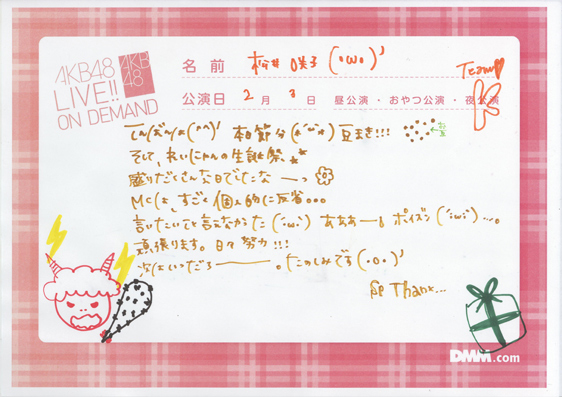 AKB48
LIVE!!
ON DEMAND
AKB
48
名前 松井咲子(・ω・)'
Team
K
公演日 2月3日 昼公演・おやつ公演・夜公演
本日節分 豆まき!!!
そして、れいにゃんの生誕祭
盛りだくさんな日でしたな
MCは、すごく個人的に反省。。。
言いたいこと言えなかった(・ω・) あああー ポイズン(・ω・)…。
頑張ります。日々努力!!!
次はいつだろ―――。たのしみです(・o・)'
Thank...
DMM.com